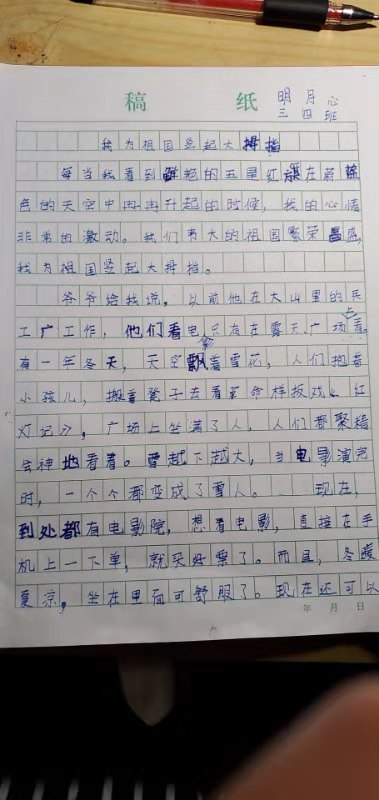 稿 纸
明月心
三四班
我为祖国竖起大拇指
每当我看到鲜艳的五星红旗在蔚蓝
色的天空中冉冉升起的时候，我的心情
非常的激动。我们伟大的祖国繁荣昌盛，
我为祖国竖起大拇指。
爷爷给我说，以前他在大山里的兵
工厂工作，他们看电影只有在露天广场上看。
有一年冬天，天空飘着雪花，人们抱着
小孩儿，搬着凳子去看革命样板戏《红
灯记》，广场上坐满了人，人们都聚精
会神地看着。雪越下越大，当电影演完
时，一个个都变成了雪人。 现在，
到处都有电影院，想看电影，直接在手
机上一下单，就买好票了。而且，冬暖
夏凉，坐在里面可舒服了。现在还可以
年 月 日